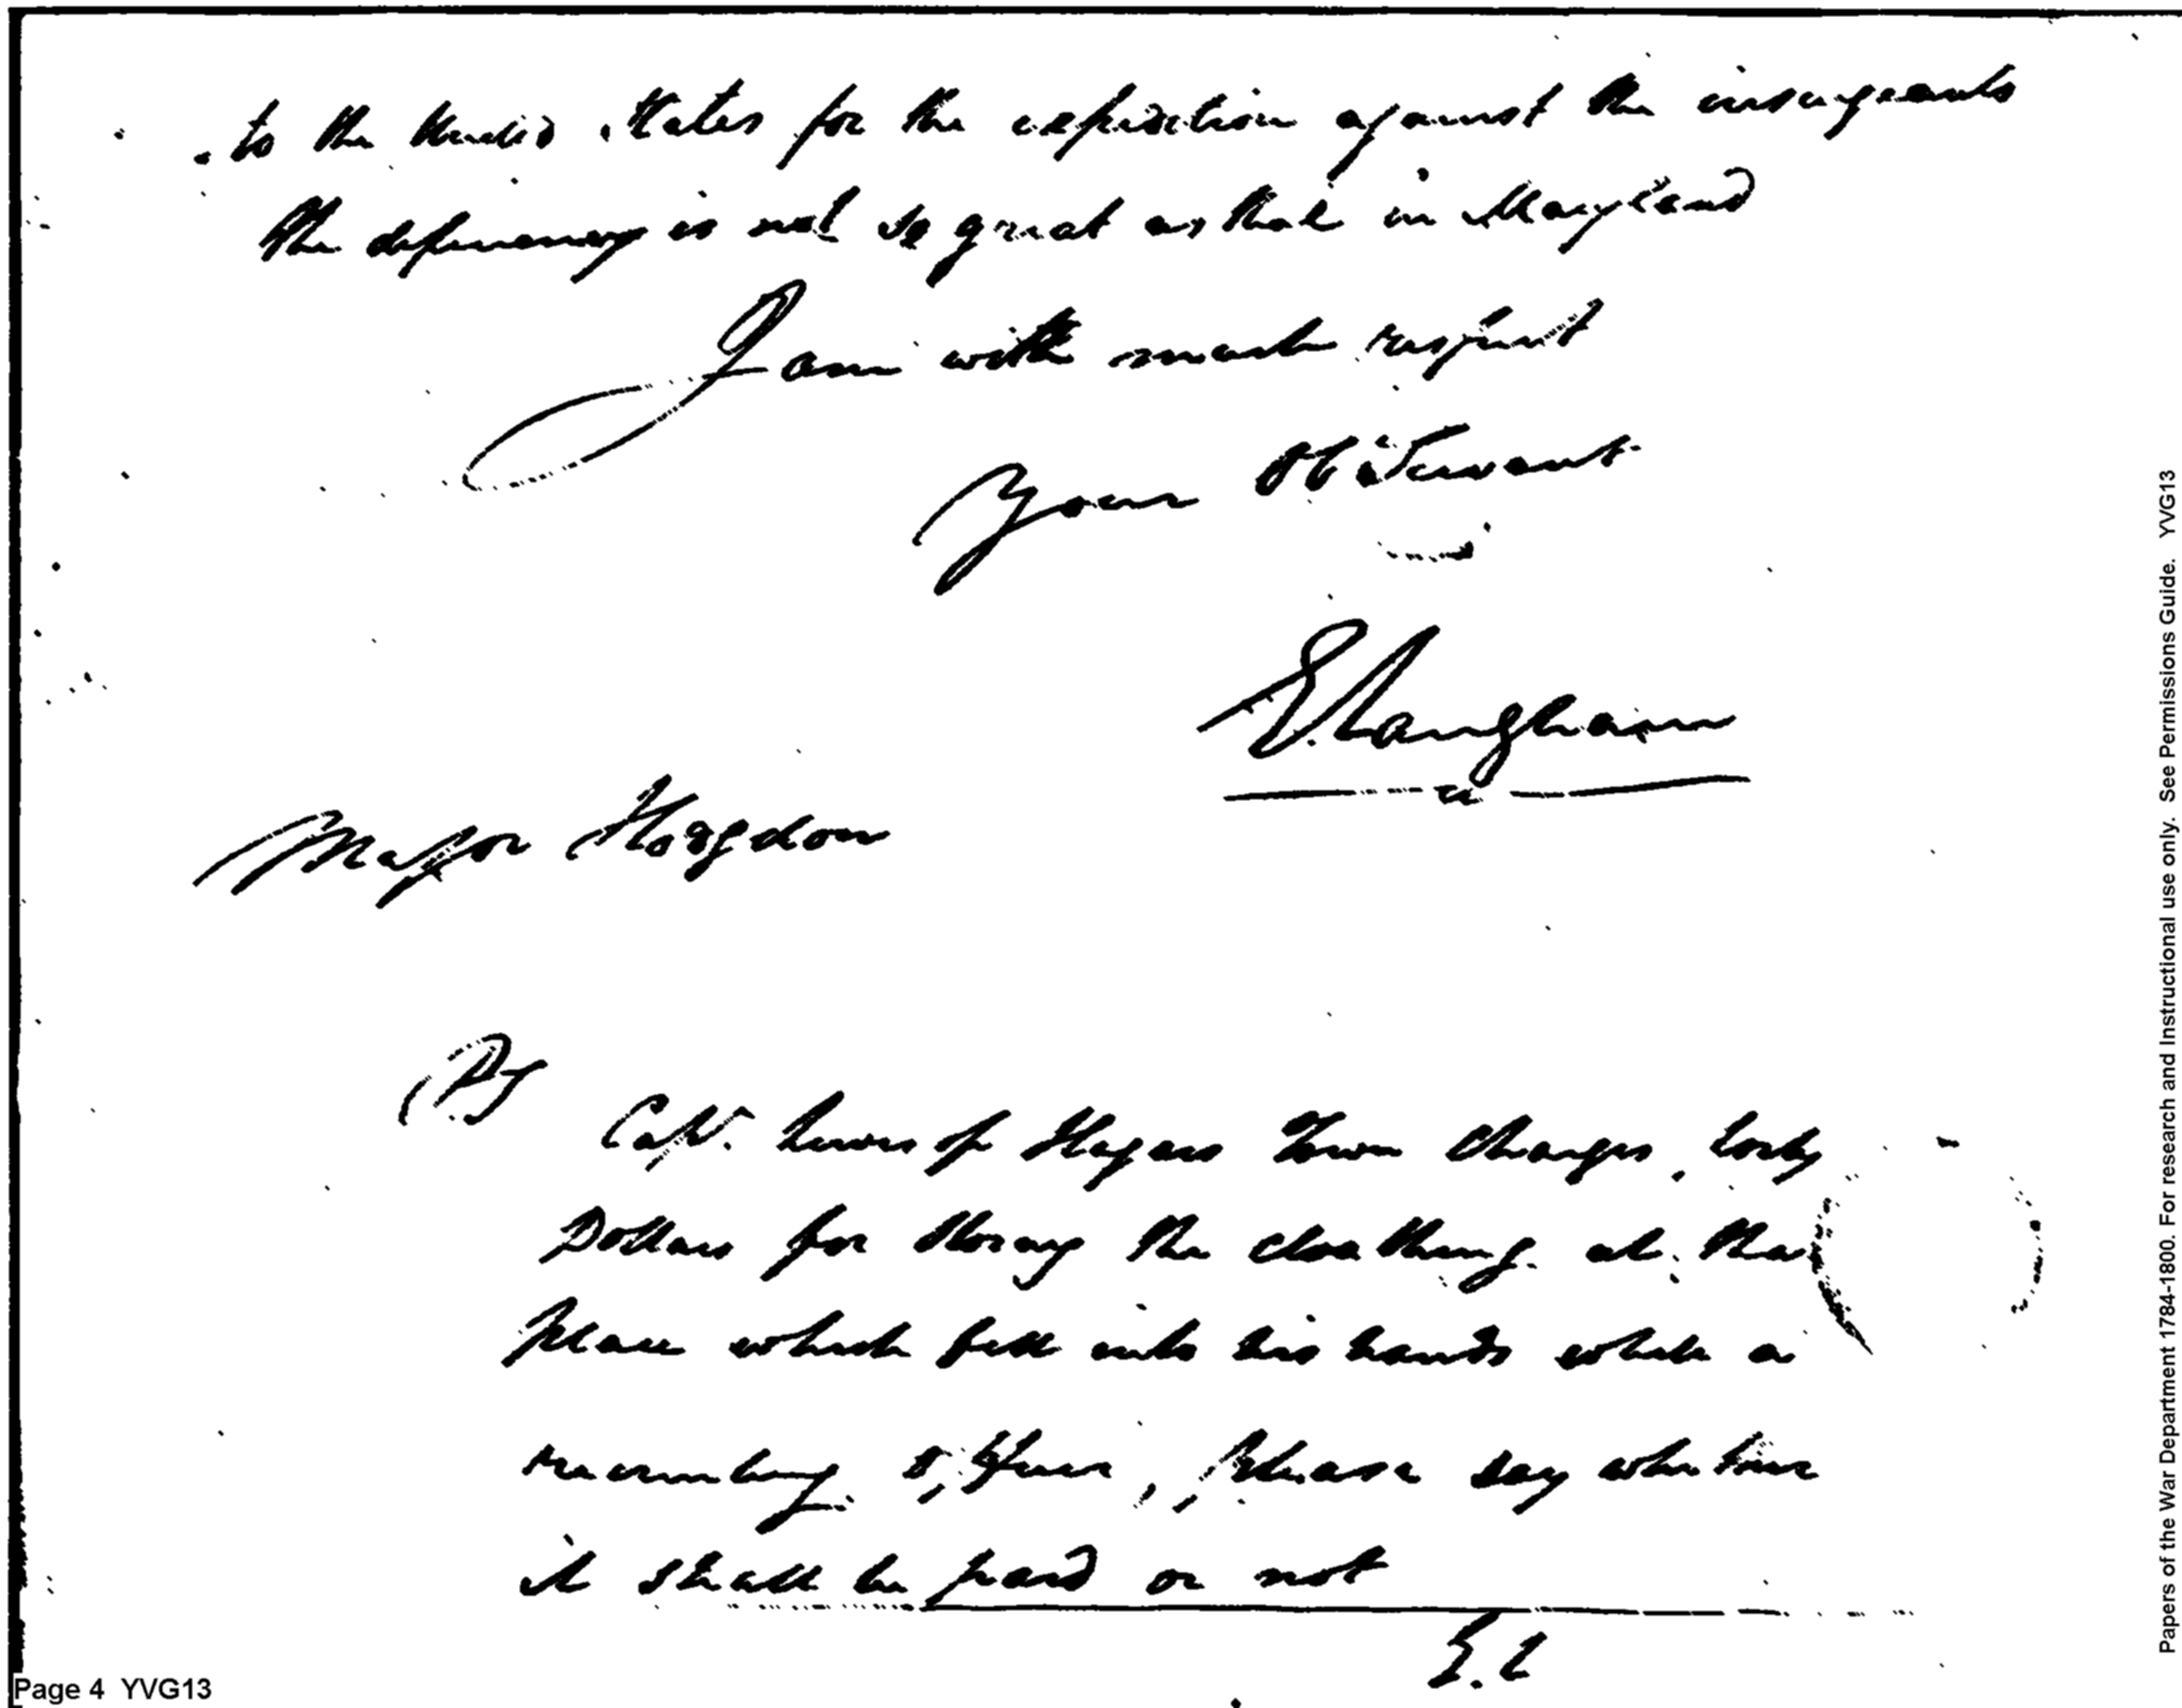 to the United States for the expedition against the insurgents
the deficiency is not so great as that in Maryland
I am with much respect
Your Ob Servant
E. Langham
Major Hogdon
PS
Capt. Lewis of Hagers Town Charges
Dollars for storing the cloathing at that
place which fell into his hands while a
recruiting officer, please say whether
it shall be paid or not
E. L
Page 4 YVG13
Papers of the War Department 1784-1800. For research and Instructional use only. See Permissions Guide. YVG13